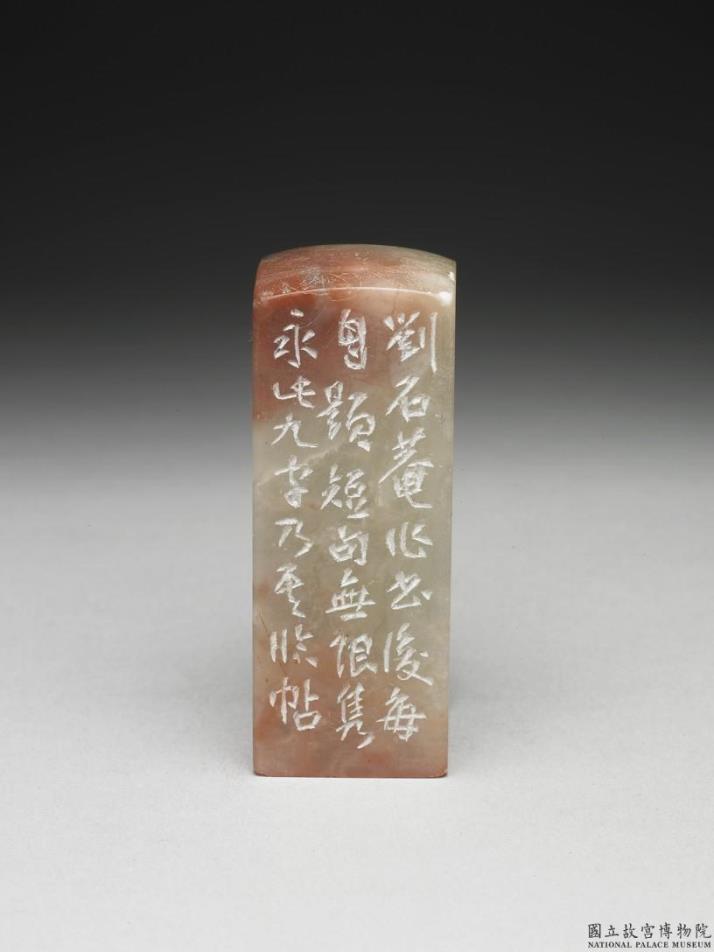 劉石菴作書後每
自題短句無限雋
永此九字乃其臨帖
國立故宮博物院
NATIONAL PALACE MUSEUM